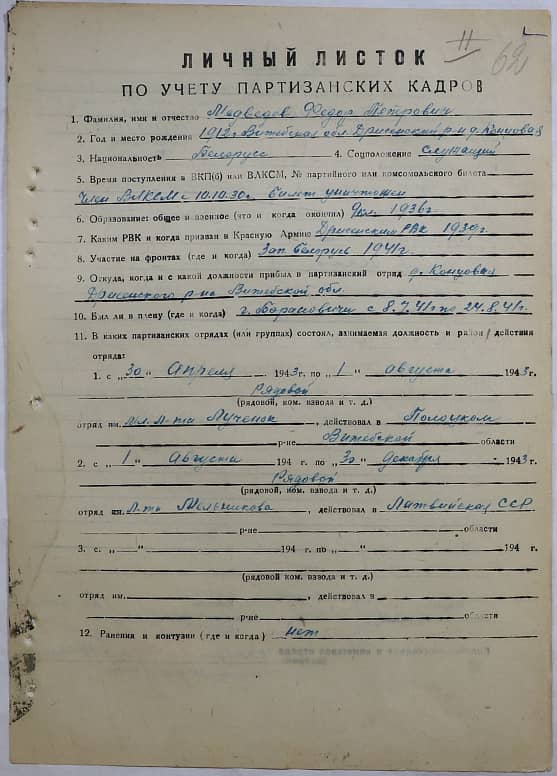 11 62
ЛИЧНЫЙ ЛИСТОК
ПО УЧЕТУ ПАРТИЗАНСКИХ КАДРОВ
1. Фамилия, имя и отчество Медведев Федор Петрович
2. Год и место рождения 1912г. Витебская обл. Дрисенский р-н д. Концовая
3. Национальность Белорусс 4. Соцположение Служащий
5. Время поступления в ВКП(б) или ВЛКСМ, № партийного или комсомольского билета
Член ВЛКСМ с 10.10.30г. билет уничтожен
6. Образование: общее и военное (что и когда окончил) 9кл. 1936г
7. Каким РВК и когда призван в Красную Армию Дрисенским РВК 1939г.
8. Участие на фронтах (где и когда) Зап. Белорусь 1941г.
9. Откуда, когда и с какой должности прибыл в партизанский отряд д. Концовая
Дрисенского р-на Витебской обл.
10. Был ли в плену (где и когда) г. Барановичи с 8.7.41г по 24.8.41г.
11. В каких партизанских отрядах (или группах) состоял, занимаемая должность и район действия
отряда:
1. с „30“ Апреля 1943г. по „1“ августа 1943г.
Рядовой
(рядовой, ком. взвода и т. д.)
отряд им. мл. л-та Лученок, действовал в Полоцком
р-не Витебской области
2. с „1“ Августа 194 г. по „30“ декабря 1943г.
Рядовой
(рядовой, ком. взвода и т. д.)
отряд им. л-та Мельникова, действовал в Латвийская ССР
р-не области
3. с „ “ 194 г. по „ “ 194 г.
(рядовой ком. взвода и т. д.)
отряд им. , действовал в
р-не области
12. Ранения и контузии (где и когда) нет